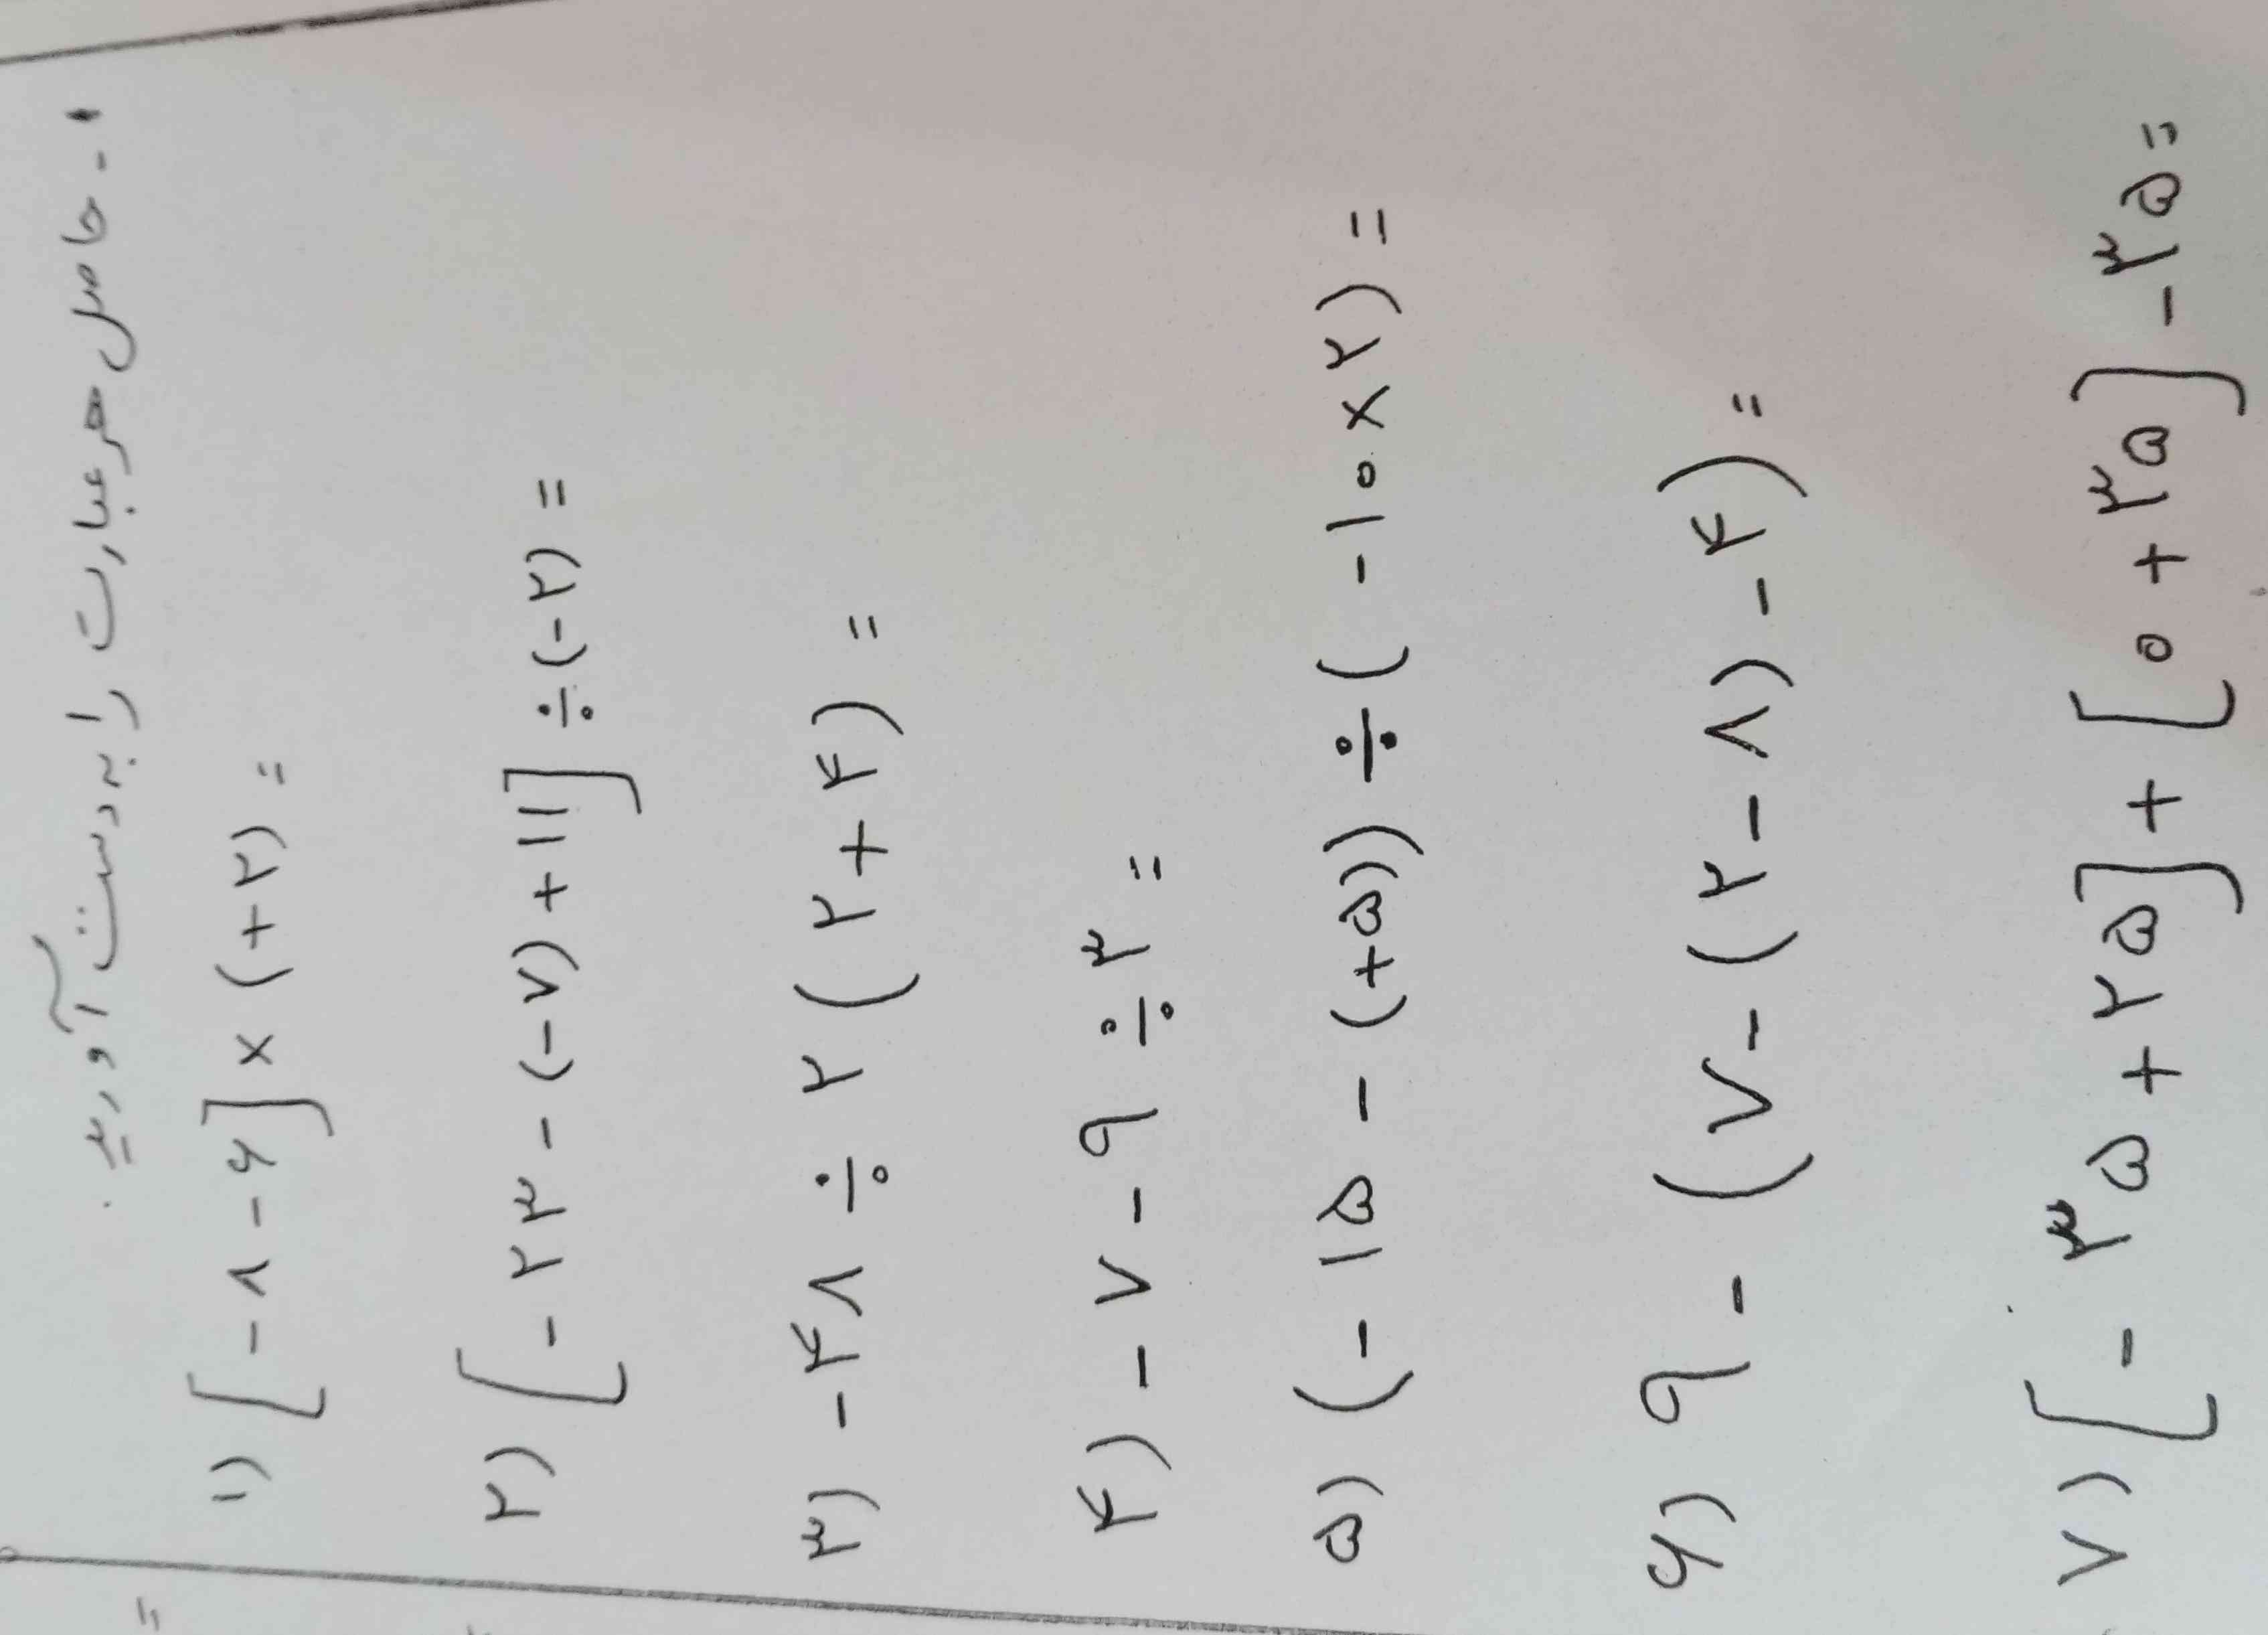 ۱- حاصل هر عبارت را به دست آورید.
۱) [-۸-۶] × (+۲) =
۲) [-۲۳ - (-۷) + ۱۱] ÷ (-۲) =
۳) -۴۸ ÷ ۲ (۲ + ۴) =
۴) -۷ - ۹ ÷ ۳ =
۵) (-۱۵ - (+۵)) ÷ (-۱۰ × ۲) =
۶) ۹ - (۷ - (۲ - ۸) - ۴) =
۷) [-۳۵ + ۲۵] + [۰ + ۳۵] - ۳۵ =
=